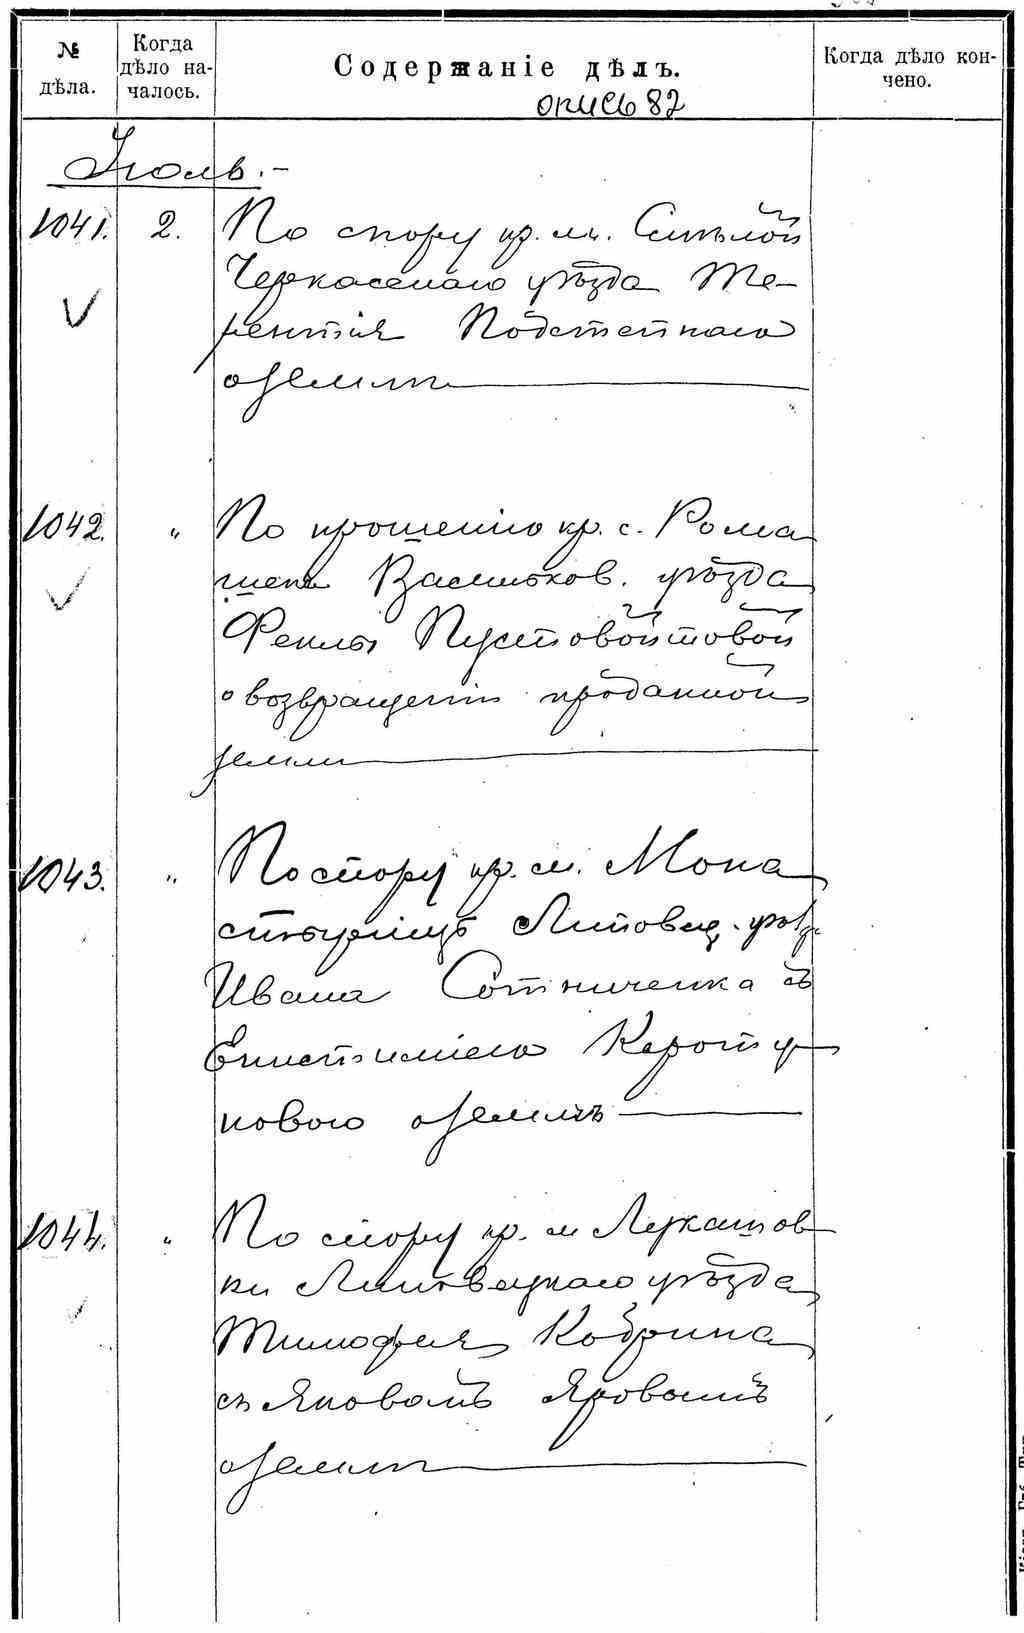 № дѣла.
Когда дѣло на-
чалось.
Содержаніе дѣлъ.
Когда дѣло кон-
чено.
опись 82
Іюль.-
1041. 2. По спору кр. м. Смѣлой
Черкасскаго уѣзда Те-
рентія Подстепнаго
о землѣ
1042. " По прошенію кр. с. Рома
шекъ Васильков. уѣзда
Феклы Пустовойтовой
о возвращеніи проданной
земли
1043. " По спору кр. м. Мона
стырищъ Липовец. уѣз.
Ивана Сотниченка съ
новою о землѣ
1044. " По спору кр. м Лукашов
ки Липовецкаго уѣзда
Тимофея Кобрина
съ Яковомъ Яровымъ
о землѣ